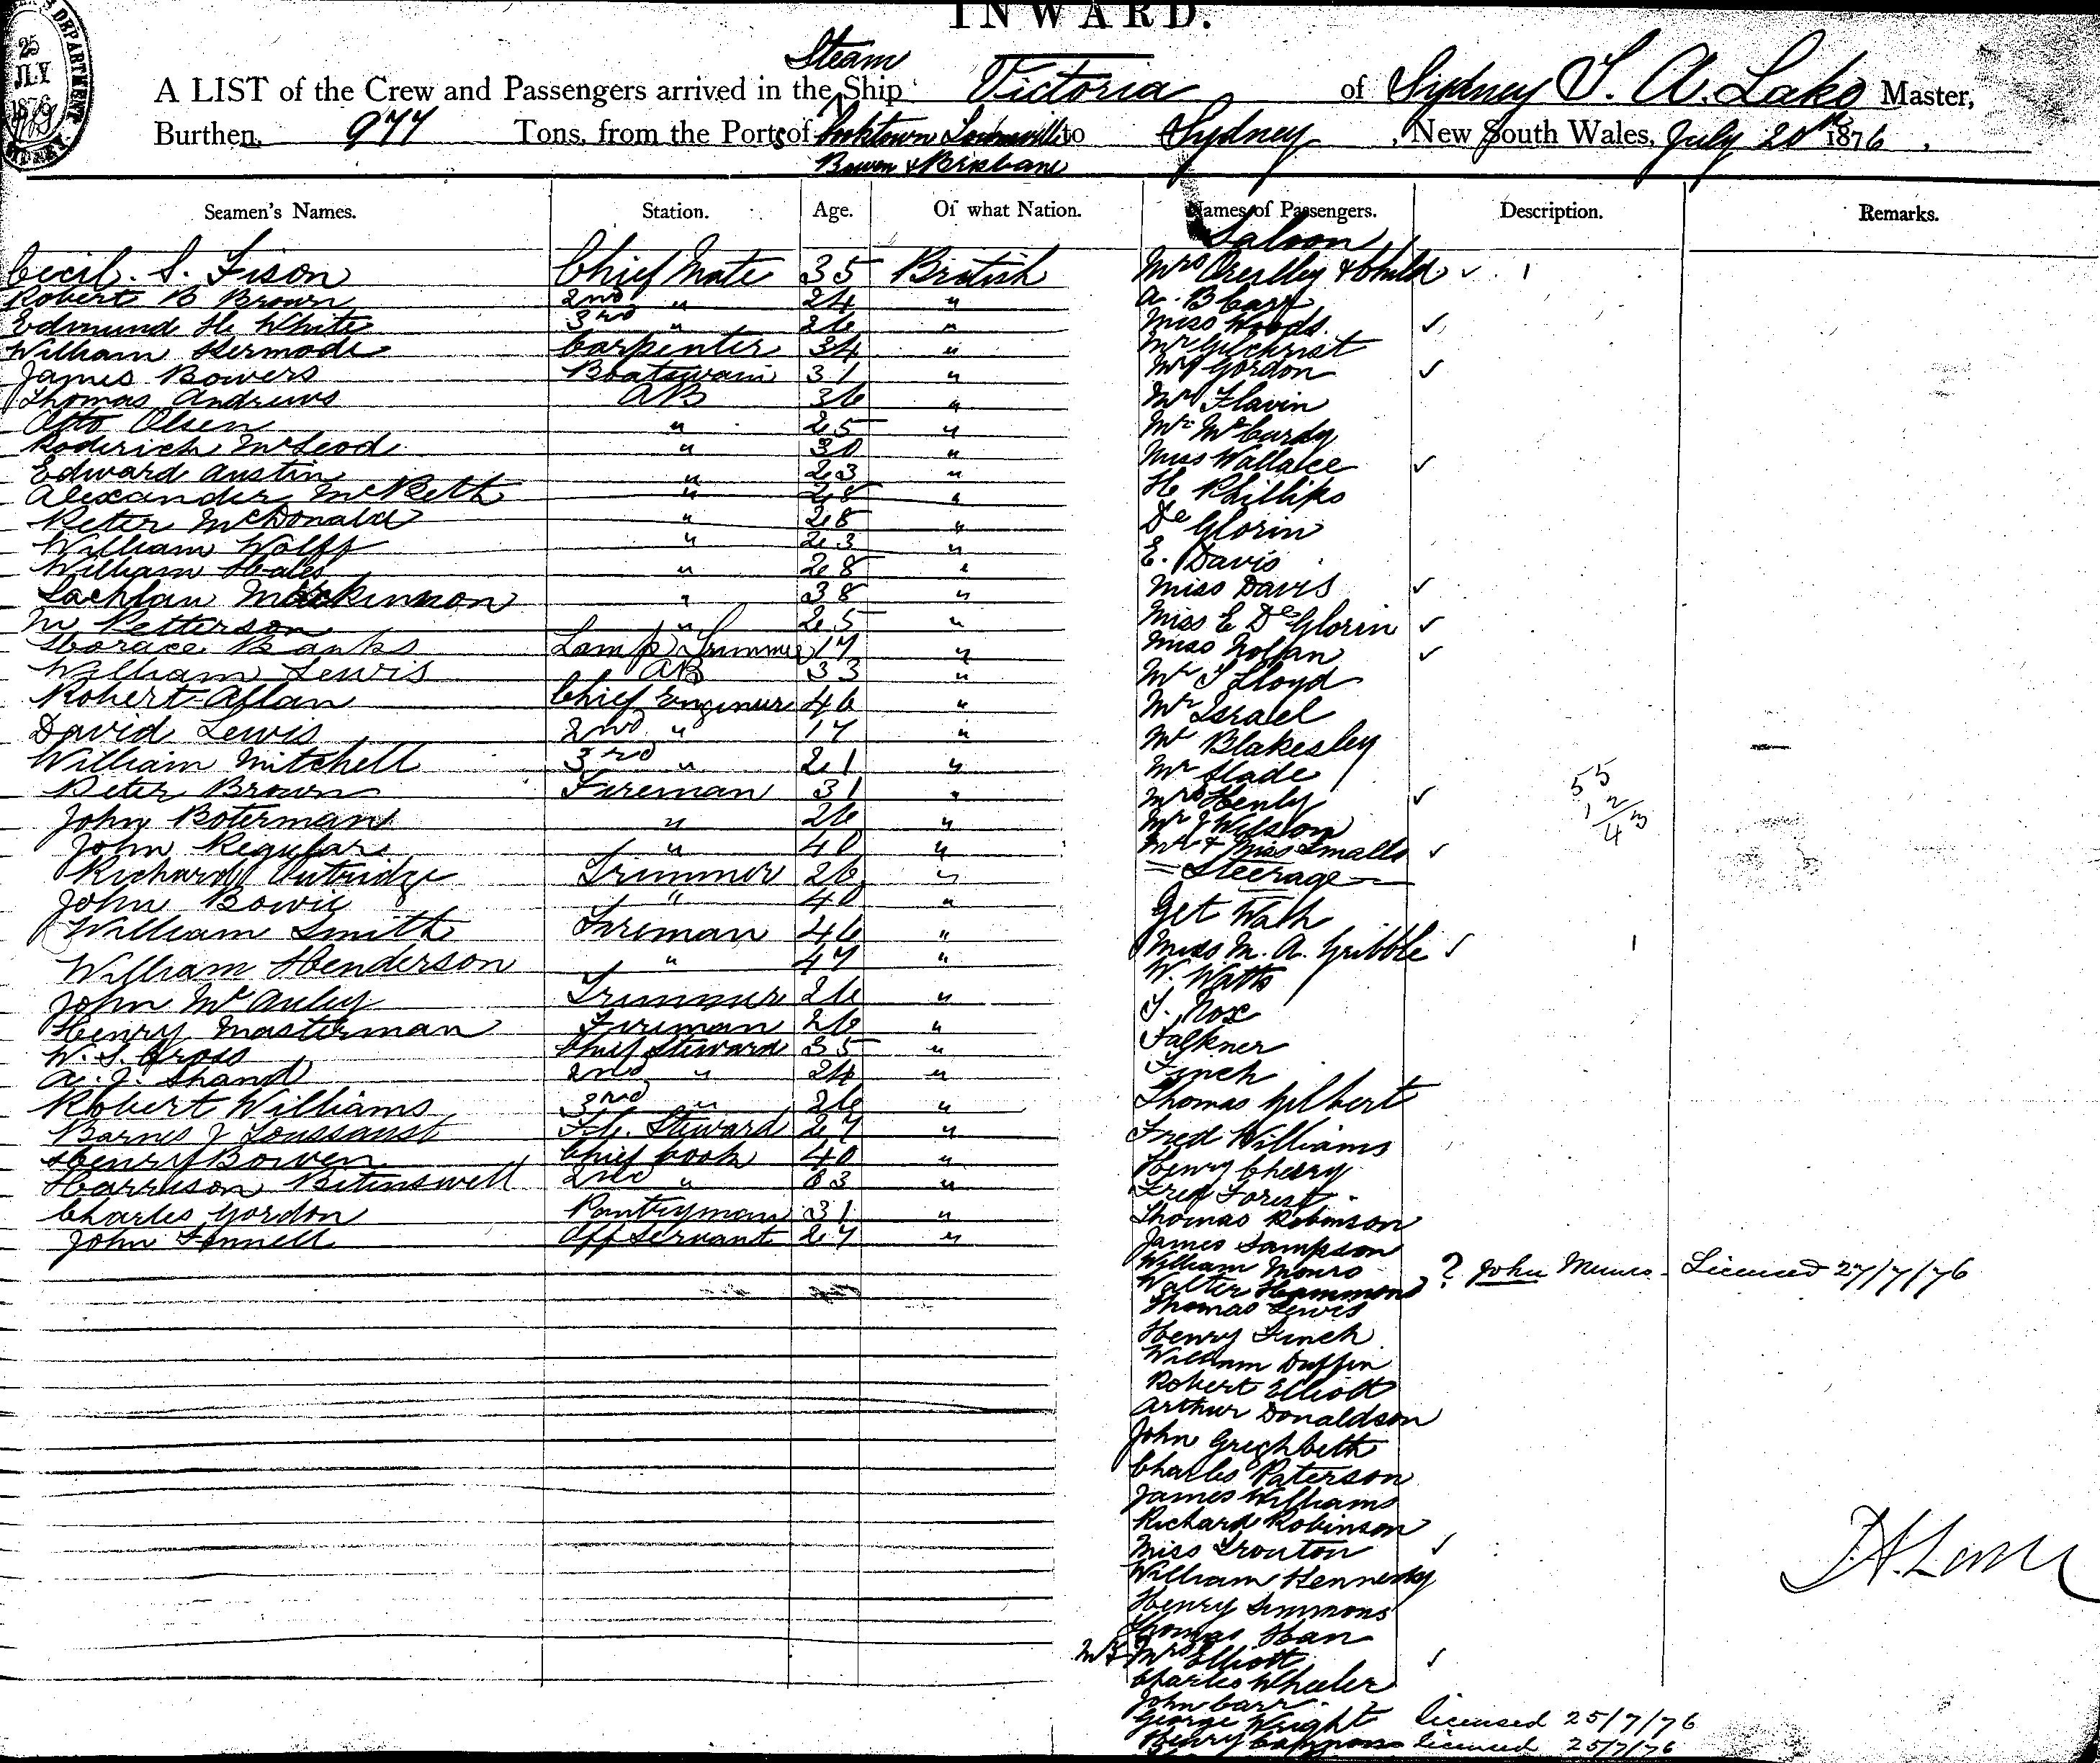 INWARD.
DEPARTMENT
25
JLY
1876
Steam
A LIST of the Crew and Passengers arrived in the Ship Victoria of Sydney T. A. Lake Master,
Burthen, 977 Tons, from the Ports of Cooktown Townsville to Sydney, New South Wales, July 1876.
Bowen & Brisbane
Seamen's Names. Station. Age. Of what Nation. Names of Passengers. Description. Remarks.
Saloon
Cecil. S. Fison Chief Mate 35 British
Robert B Brown 2nd " 24 "
Edmund H White 3rd " 26 "
William Kermode Carpenter 34 "
James Bowers Boatswain 31 "
Thomas Andrews AB 36 "
Otto Olsen " 25 "
Roderich McLeod " 30 "
Edward Austin " 23 "
Alexander McBeth " 28 "
Peter McDonald " 28 "
William Wolff " 23 "
William Hales " 28 "
Lachlan Mackinnon " 38 "
M Petterson " 25 "
Horace Banks Lamp Trimmer 17 "
William Lewis AB 33 "
Robert Allan Chief Engineer 46 "
David Lewis 2nd " 17 "
William Mitchell 3rd " 21 "
Peter Brown Fireman 31 "
John Boterman " 26 "
John Regular " 40 "
Richard Outridge Trimmer 26 "
John Bowie " 40 "
William Smith Fireman 46 "
William Henderson " 47 "
John McAuley Trimmer 26 "
Henry Masterman Fireman 26 "
W. S. Cross Chief Steward 35 "
A. J. Shand 2nd " 24 "
Robert Williams 3rd " 26 "
Barnes J Toussaint F.C. Steward 27 "
Henry Bowen Chief Cook 40 "
Harrison 2nd " "
Charles Gordon Pantryman 31 "
John Fennell Off Servant 27 "
Mrs & Child ✓ 1
A. B Carr
Miss Woods. ✓
Mr Gilchrist
Mrs Gordon ✓
Mr Flavin
Mr McCurdy
Miss Wallace ✓
H Phillips
De Glorin
E. Davis
Miss Davis ✓
Miss E De Glorin ✓
Miss Nollan ✓
Mr S Lloyd
Mr Israel
Mr Blakesley
Mr Slade
Mrs Henly ✓
Mr J Wilson
Mr & Miss Smalls ✓
55
12/3
4
Steerage
Get Wah
Miss M. A. Gribble ✓ 1
W. Watts
T. Nox
Falkner
Finch
Thomas Gilbert
Fred Williams
Henry Cherry
Fred Forest
Thomas Robinson
James Sampson
William Monro ? John Munro - Licensed 27/7/76
Walter Hammond
Thomas Lewis
Henry Finch
William Duffin
Robert Elliott
Arthur Donaldson
John
Charles Paterson
James Williams
Richard Robinson
Miss Trouton ✓
William Kennedy
Henry Simmons
Thomas Han
Mrs Elliott ✓
Charles Wheeler
John Carr
George Wright licensed 25/7/76
Henry licensed 25/7/76